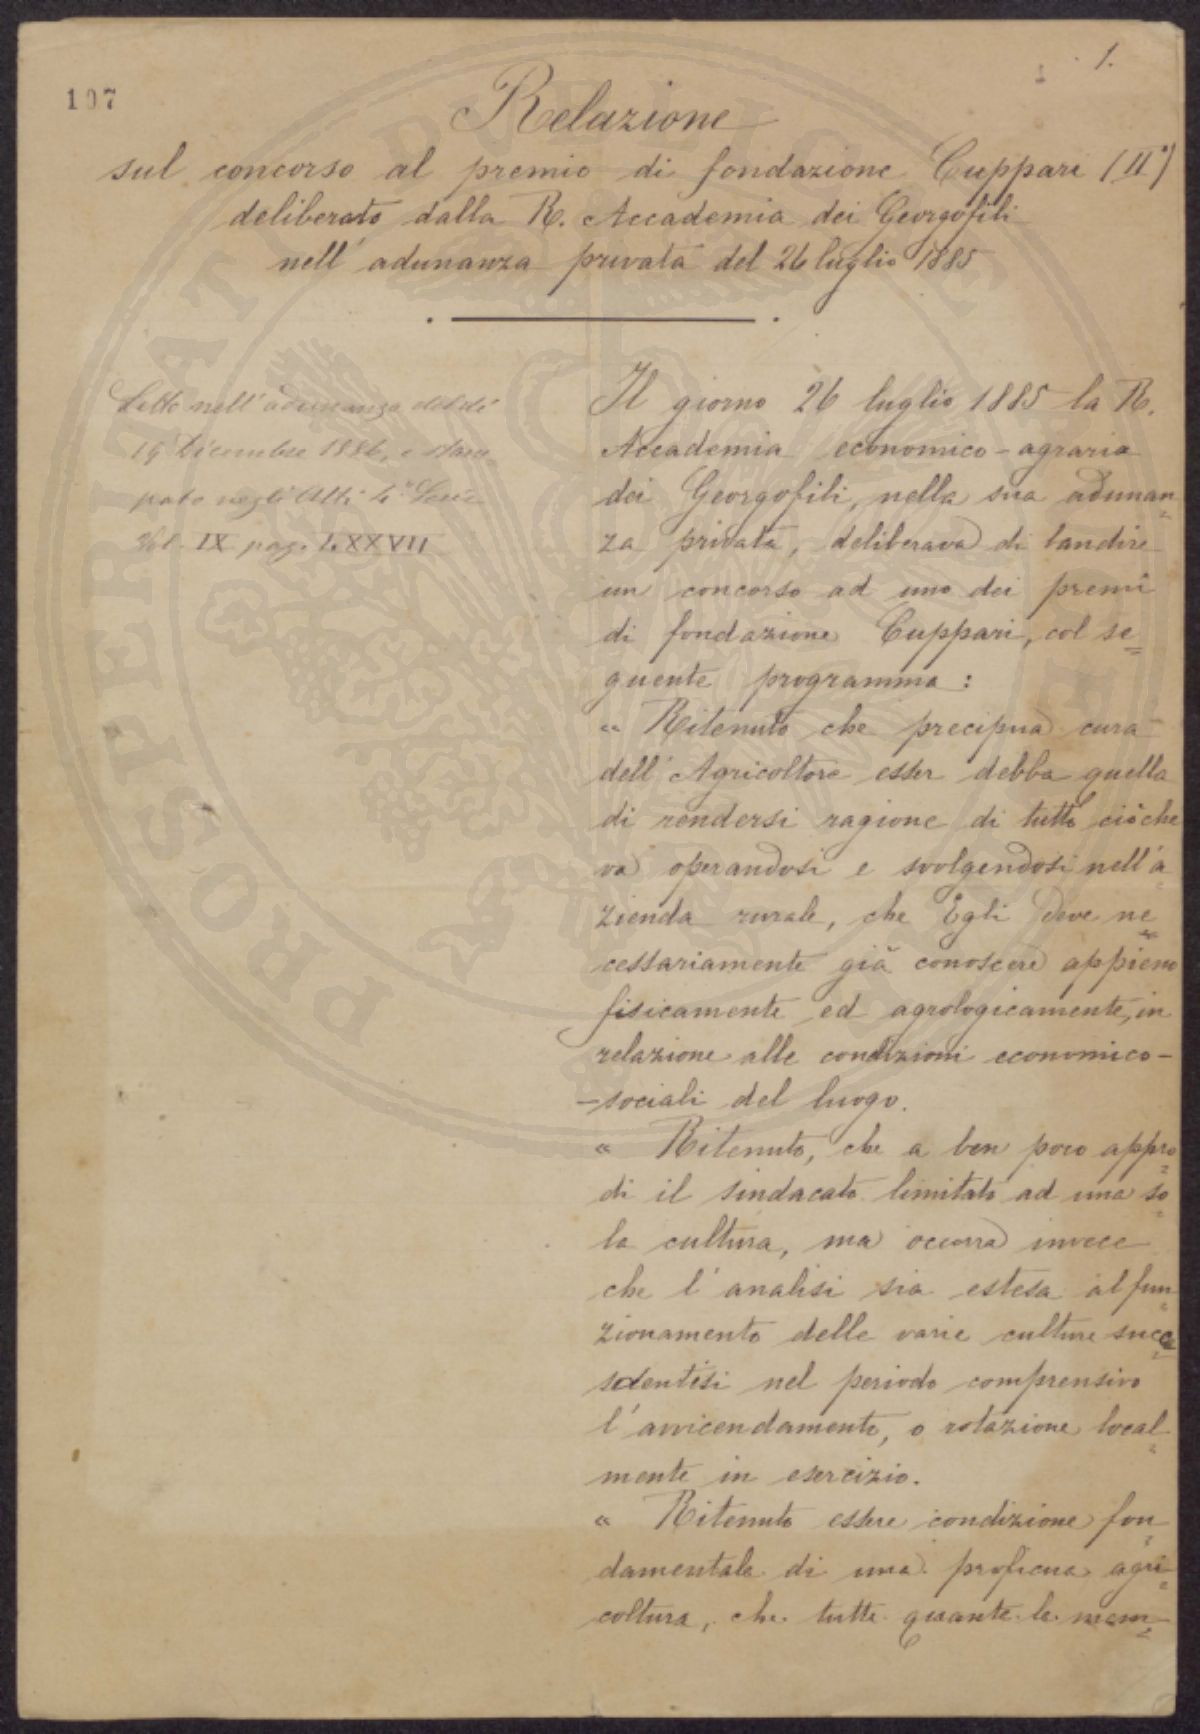 1.
107
Relazione
sul concorso al premio di fondazione Cuppari (II°)
deliberato dalla R. Accademia dei Georgofili
nell'adunanza privata del 26 luglio 1885
Letto nell'adunanza del dì
19 Dicembre 1886, e stam
pato negli Atti 4ª Serie
Vol. IX pag. LXXVII
Il giorno 26 luglio 1885 la R.
Accademia economico-agraria
dei Georgofili, nella sua adunan
za privata, deliberava di bandire
un concorso ad uno dei premi
di fondazione Cuppari, col se
guente programma:
"Ritenuto che precipua cura
dell'Agricoltore esser debba quella
di rendersi ragione di tutto ciò che
va operandosi e svolgendosi nell'a
zienda rurale, che Egli deve ne
cessariamente già conoscere appieno
fisicamente ed agrologicamente, in
relazione alle condizioni economico-
-sociali del luogo.
" Ritenuto, che a ben poco appro
di il sindacato limitato ad una so
la cultura, ma occorra invece
che l'analisi sia estesa al fun
zionamento delle varie culture succe
dentisi nel periodo comprensivo
l'avvicendamento, o rotazione local
mente in esercizio.
" Ritenuto essere condizione fon
damentale di una proficua agri
coltura, che tutte quante le mem
PROSPERITATI